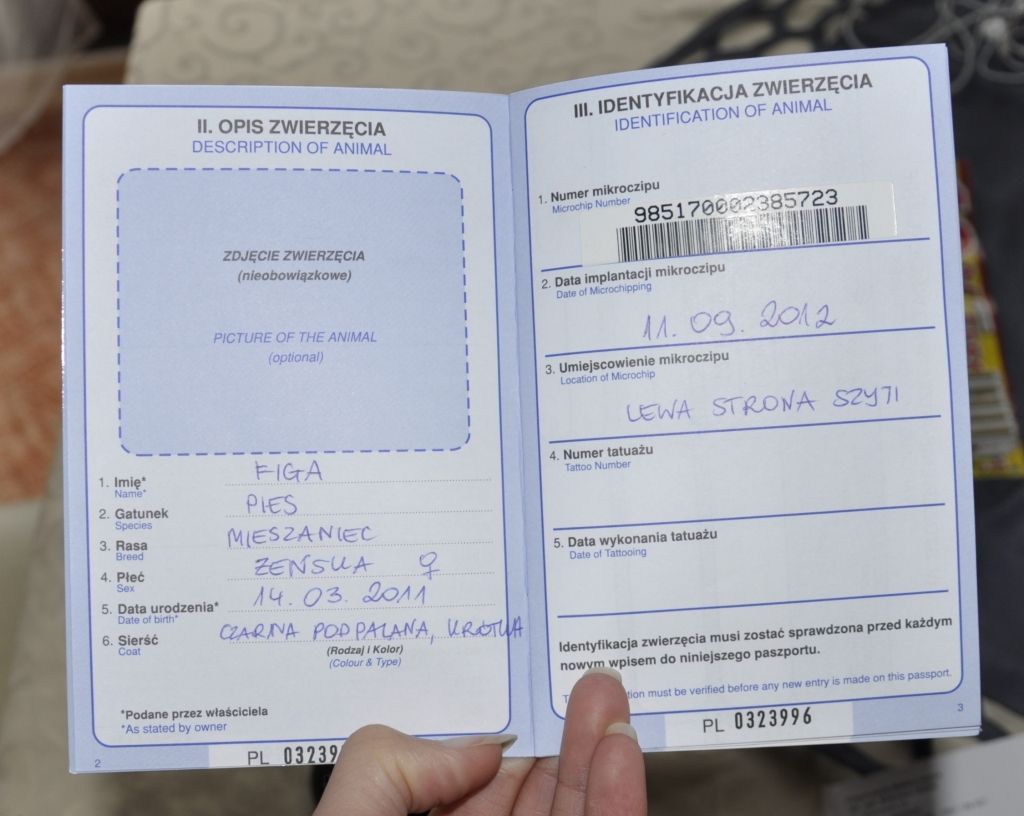 II. OPIS ZWIERZĘCIA
DESCRIPTION OF ANIMAL
ZDJĘCIE ZWIERZĘCIA
(nieobowiązkowe)
PICTURE OF THE ANIMAL
(optional)
1. Imię* FIGA
Name*
2. Gatunek PIES
Species
3. Rasa MIESZANIEC
Breed
4. Płeć ŻEŃSKA ♀
Sex
5. Data urodzenia* 14.03.2011
Date of birth*
6. Sierść CZARNA PODPALANA, KRÓTKA
Coat
(Rodzaj i Kolor)
(Colour & Type)
*Podane przez właściciela
*As stated by owner
2
PL 03239
III. IDENTYFIKACJA ZWIERZĘCIA
IDENTIFICATION OF ANIMAL
1. Numer mikroczipu
Microchip Number
985170002385723
2. Data implantacji mikroczipu
Date of Microchipping
11.09.2012
3. Umiejscowienie mikroczipu
Location of Microchip
LEWA STRONA SZYJI
4. Numer tatuażu
Tattoo Number
5. Data wykonania tatuażu
Date of Tattooing
Identyfikacja zwierzęcia musi zostać sprawdzona przed każdym
nowym wpisem do niniejszego paszportu.
must be verified before any new entry is made on this passport.
3
PL 0323996